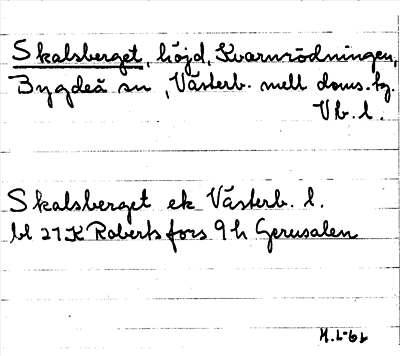 Skalsberget, höjd, Kvarnrödningen,
Bygdeå sn, Västerb. mell doms. hg.
Vb. l.
Skalsberget ek Västerb. l.
bl 21K Robertsfors 9h Gerusalen
M.L-62